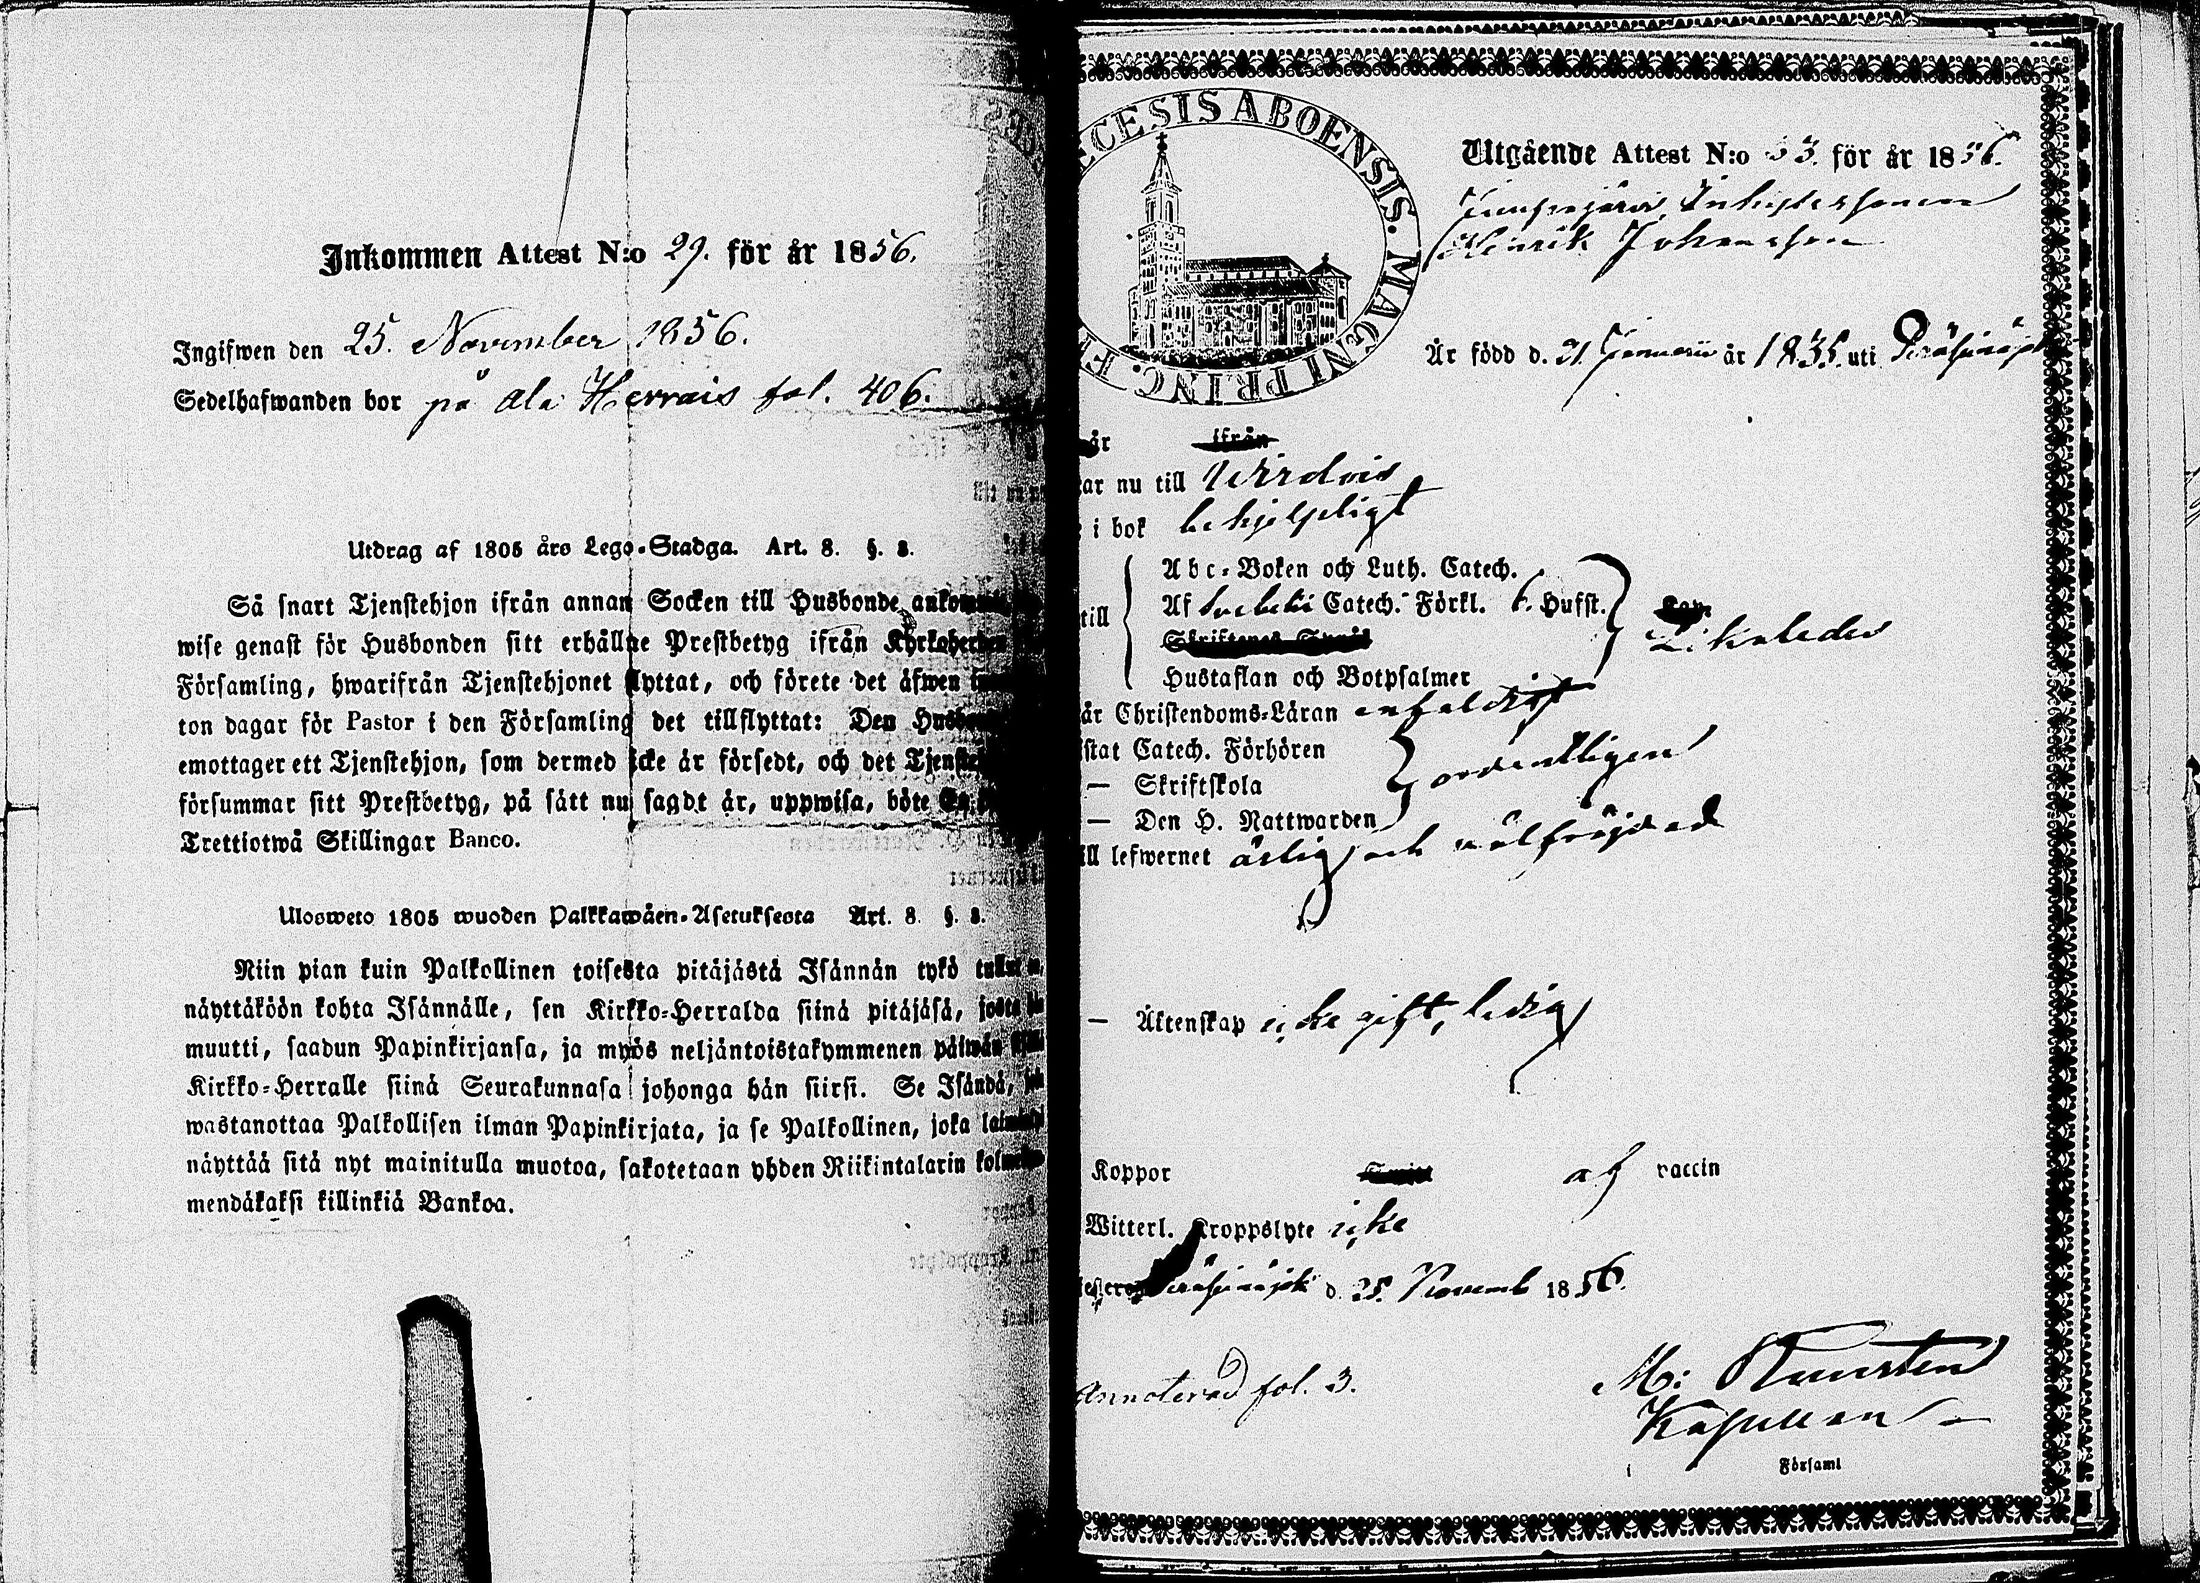 Inkommen Attest N:o 29. för år 1856.
Ingifwen den 25. November 1856.
Sedelhafwanden bor på Ala Herrais fol. 406.
Utdrag af 1805 års Lego-Stadga. Art. 8. §. 8.
Så snart Tjenstehjon ifrån annan Socken till Husbonde
wise genast för Husbonden sitt erhållne Prestbetyg ifrån Kyrkoherden
Församling, hwarifrån Tjenstehjonet flyttat, och förete det äfwen
ton dagar för Pastor i den Församling det tillflyttat: Den
emottager ett Tjenstehjon, som dermed icke är försedt, och det
försummar sitt Prestbetyg, på sätt nu sagdt är, uppwisa, böte
Trettiotwå Skillingar Banco.
Ulosweto 1805 wuoden Palkkawäen-Asetuksesta Art. 8. §. 8.
Niin pian kuin Palkollinen toisesta pitäjästä Isännän tykö
näyttäköön kohta Isännälle, sen Kirkko-Herralda siinä pitäjäsä, josta
muutti, saadun Papinkirjansa, ja myös neljäntoistakymmenen päiwän
Kirkko-Herralle siinä Seurakunnasa johonga hän siirsi. Se Isändä,
wastanottaa Palkollisen ilman Papinkirjata, ja se Palkollinen, joka
näyttää sitä nyt mainitulla muotoa, sakotetaan yhden Riikintalarin
mendäkaksi killinkiä Bankoa.
ECESIS ABOENSIS. MAGNI PRINC. F
Utgående Attest N:o 53. för år 1856.
Inhysessonen
Henrik Johansson
Är född d. 21. Januarii år 1835. uti Peräseinäjoki
är ifrån
ar nu till Wirdois
i bok behjelpligt
till
Abc-Boken och Luth. Catech.
Af Svebelii Catech. Förkl. 6. Hufst.
Hustaflan och Botpsalmer
Likaledes
år Christendoms-Läran enfaldigt
stat Catech. Förhören
— Skriftskola
— Den H. Nattwarden
ordentligen
ll lefwernet ärlig och välfräjdad
— Äktenskap icke gift, ledig
Koppor af vaccin
Witterl. Kroppslyte icke
Peräseinäjoki d. 25. Novemb 1856.
Annoterad fol. 3.
M:
Kapellan
Församl